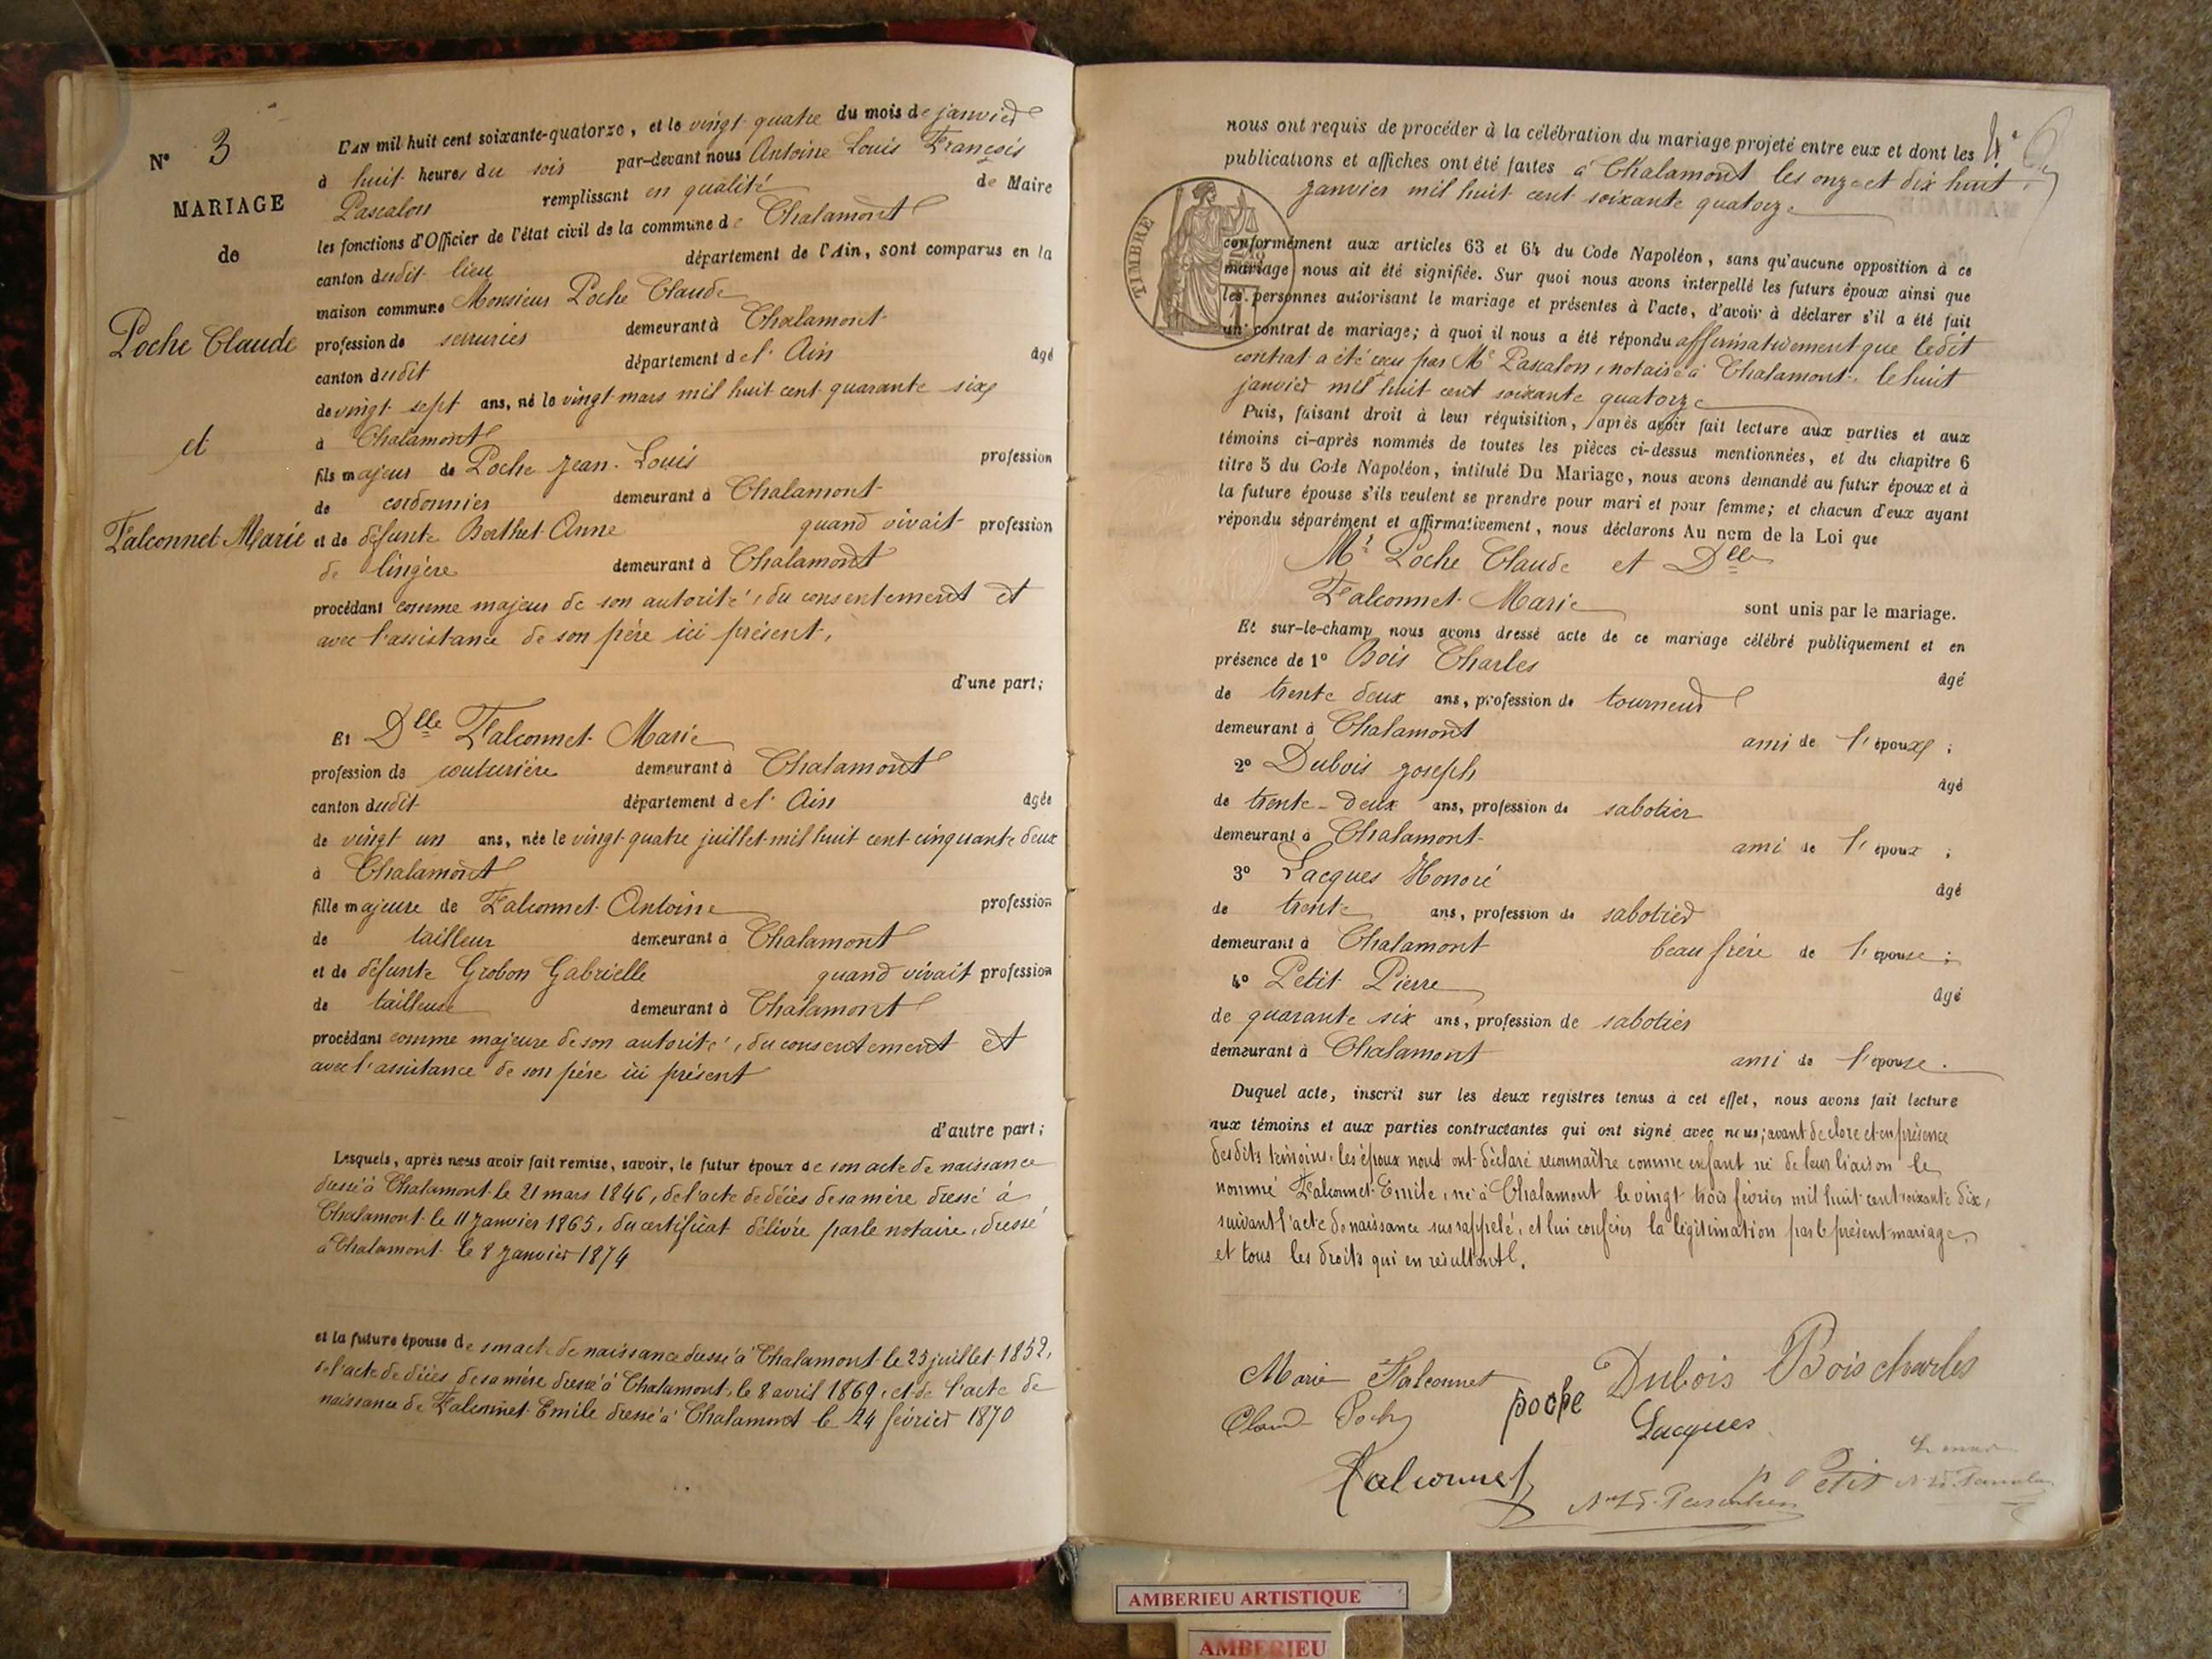 N° 3
MARIAGE
de
Poche Claude
et
Falconnet Marie
L'AN mil huit cent soixante-quatorze, et le vingt quatre du mois de janvier
à huit heures du soir par-devant nous Antoine Louis François
Pascalon remplissant en qualité de Maire
les fonctions d'Officier de l'état civil de la commune de Chalamont
canton dudit lieu département de l'Ain, sont comparus en la
maison commune Monsieur Poche Claude
profession de serrurier demeurant à Chalamont
canton dudit département de l'Ain âgé
de vingt sept ans, né le vingt mars mil huit cent quarante six
à Chalamont
fils majeur de Poche Jean-Louis profession
de cordonnier demeurant à Chalamont
et de défunte Berthet Anne quand vivait profession
de lingère demeurant à Chalamont
procédant comme majeur de son autorité, du consentement et
avec l'assistance de son père ici présent,
d'une part;
Et Dlle Falconnet Marie
profession de couturière demeurant à Chalamont
canton dudit département de l'Ain âgée
de vingt un ans, née le vingt quatre juillet mil huit cent cinquante deux
à Chalamont
fille majeure de Falconnet Antoine profession
de tailleur demeurant à Chalamont
et de défunte Grobon Gabrielle quand vivait profession
de tailleuse demeurant à Chalamont
procédant comme majeure de son autorité, du consentement et
avec l'assistance de son père ici présent
d'autre part;
Lesquels, après nous avoir fait remise, savoir, le futur époux de son acte de naissance
dressé à Chalamont le 21 mars 1846, de l'acte de décès de sa mère dressé à
Chalamont le 11 janvier 1865, du certificat délivré par le notaire, dressé
à Chalamont le 8 janvier 1874
et la future épouse de son acte de naissance dressé à Chalamont le 25 juillet 1852,
de l'acte de décès de sa mère dressé à Chalamont, le 8 avril 1869, et de l'acte de
naissance de Falconnet Emile dressé à Chalamont le 24 février 1870
nous ont requis de procéder à la célébration du mariage projeté entre eux et dont les
publications et affiches ont été faites à Chalamont les onze et dix huit
janvier mil huit cent soixante quatorze
TIMBRE
conformément aux articles 63 et 64 du Code Napoléon, sans qu'aucune opposition à ce
mariage nous ait été signifiée. Sur quoi nous avons interpellé les futurs époux ainsi que
les personnes autorisant le mariage et présentes à l'acte, d'avoir à déclarer s'il a été fait
un contrat de mariage; à quoi il nous a été répondu affirmativement que ledit
contrat a été reçu par Me Pascalon, notaire à Chalamont, le huit
janvier mil huit cent soixante quatorze
Puis, faisant droit à leur réquisition, après avoir fait lecture aux parties et aux
témoins ci-après nommés de toutes les pièces ci-dessus mentionnées, et du chapitre 6
titre 5 du Code Napoléon, intitulé Du Mariage, nous avons demandé au futur époux et à
la future épouse s'ils veulent se prendre pour mari et pour femme; et chacun d'eux ayant
répondu séparément et affirmativement, nous déclarons Au nom de la Loi que
Mr Poche Claude et Dlle
Falconnet Marie sont unis par le mariage.
Et sur-le-champ nous avons dressé acte de ce mariage célébré publiquement et en
présence de 1° Bois Charles âgé
de trente deux ans, profession de tourneur
demeurant à Chalamont ami de l'époux;
2° Dubois Joseph âgé
de trente-deux ans, profession de sabotier
demeurant à Chalamont ami de l'époux;
3° Lacques Honoré âgé
de trente ans, profession de sabotier
demeurant à Chalamont beau frère de l'épouse;
4° Petit Pierre âgé
de quarante six ans, profession de sabotier
demeurant à Chalamont ami de l'épouse.
Duquel acte, inscrit sur les deux registres tenus à cet effet, nous avons fait lecture
aux témoins et aux parties contractantes qui ont signé avec nous; avant de clore et en présence
desdits témoins, les époux nous ont déclaré reconnaître comme enfant né de leur liaison le
nommé Falconnet Emile, né à Chalamont le vingt trois février mil huit cent soixante dix,
suivant l'acte de naissance sus rappelé, et lui conférer la légitimation par le présent mariage
et tous les droits qui en résultent.
Marie Falconnet poche Dubois Bois charles
Claude Poche Lacques
Falconnet Petit
AMBERIEU ARTISTIQUE
AMBERIEU